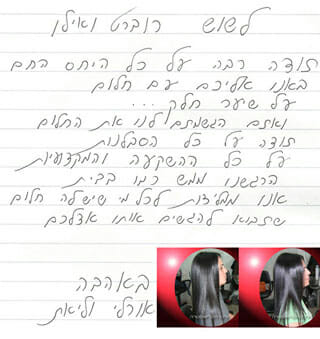 לשוש רוברט ואילן
תודה רבה על כל היחס החם
באנו אליכם עם חלום
על שיער חלק ...
ואתם הגשמתם לנו את החלום
תודה על כל הסבלנות
על כל ההשקעה והמקצועיות
הרגשנו ממש כמו בבית
אנו ממליצות לכל מי שיש לה חלום
שתבוא להגשים אותו אצלכם
באהבה
אורלי וליאת